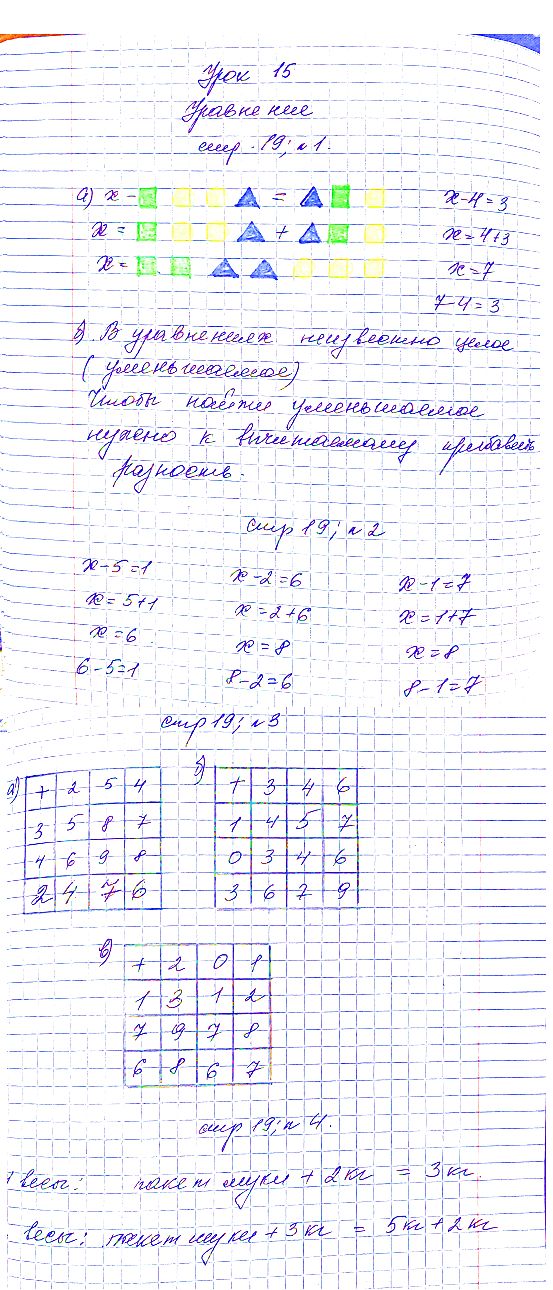 Урок 15
Уравнение
стр. 19; №1.
а) х - = х-4=3
х = + х=4+3
х = х=7
7-4=3
б) В уравнениях неизвестно целое
(уменьшаемое)
Чтобы найти уменьшаемое
нужно к вычитаемому прибавить
разность.
стр 19; №2
х-5=1 х-2=6 х-1=7
х=5+1 х=2+6 х=1+7
х=6 х=8 х=8
6-5=1 8-2=6 8-1=7
стр 19; №3
а) б)
+ 2 5 4 + 3 4 6
3 5 8 7 1 4 5 7
4 6 9 8 0 3 4 6
2 4 7 6 3 6 7 9
в)
+ 2 0 1
1 3 1 2
7 9 7 8
6 8 6 7
стр 19; №4.
весы: пакет муки + 2кг = 3кг
весы: пакет муки + 3кг = 5кг + 2кг